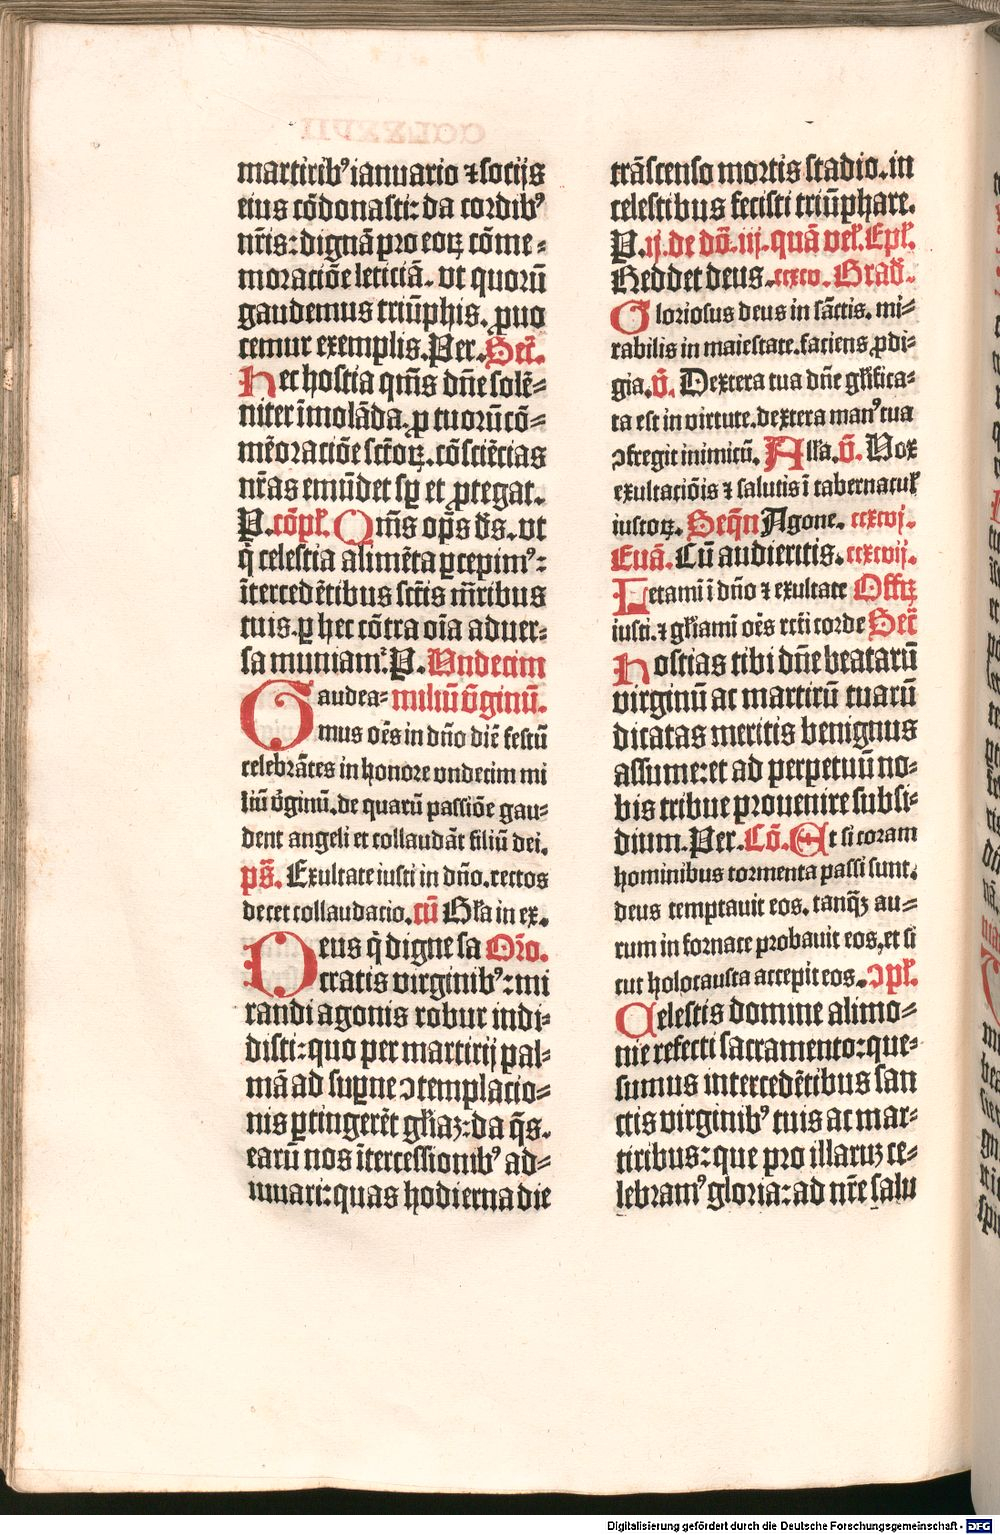 martirib⁹ ianuario ⁊ socijs
eius cōdonasti: da cordib⁹
nr̄is: dignā pro eoꝝ cōme-
moratiōe leticiā. vt quorū
gaudemus triūphis. ꝓuo
cemur exemplis. Per. Secͬ.
Hec hostia qm̄s dn̄e solē-
niter īmolāda. ꝓ tuorū cō-
mēoratiōe sctōꝝ. cōsciētias
nr̄as emūdet sꝑ et ꝓtegat.
P. cōpɫ. Qm̄s op̄s ds̄. vt
q̄ celestia alimēta ꝑcepim⁹:
ītercedētibus sctīs mr̄ibus
tuis. ꝑ hec cōtra oīa aduer-
sa muniamꝰ. P. Vndecim
Gaudea- miliū v̄ginū.
mus oēs in dn̄o diē festū
celebrātes in honore vndecim mi
liū v̄ginū. de quarū passiōe gau-
dent angeli et collaudāt filiū dei.
ps̄. Exultate iusti in dn̄o. rectos
decet collaudatio. cū Gɫa in ex.
Deus q̄ digne sa Orō.
cratis virginib⁹: mi
randi agonis robur indi-
disti: quo per martirij pal-
mā ad suꝑne ↄtemplacio-
nis ꝑtingerēt gɫiaꝫ: da q̄s.
earū nos ītercessionib⁹ ad-
iuuari: quas hodierna die
trāscenso mortis stadio. in
celestibus fecisti triūphare.
P. ij. de dō. iij. quā vel. Epɫ.
Reddet deus. ccxcv. Grad̄.
Gloriosus deus in sāctis. mi-
rabilis in maiestate. faciens ꝓdi-
gia. v̄. Dextera tua dn̄e gɫifica-
ta est in virtute. dextera man⁹ tua
ↄfregit inimicū. Alla. v̄. Vox
exultatiōis ⁊ salutis ī tabernacuɫ
iustoꝝ. Seqn̄ Agone. ccxcvj.
Euā. Cū audieritis. ccxcvij.
Letamī ī dn̄o ⁊ exultate Offꝝ
iusti. ⁊ gɫiamī oēs rcti corde Secͬ
Hostias tibi dn̄e beatarū
virginū ac martirū tuarū
dicatas meritis benignus
assume: et ad perpetuū no-
bis tribue prouenire subsi-
dium. Per. Cō. Et si coram
hominibus tormenta passi sunt.
deus temptauit eos. tanqꝫ au-
rum in fornace probauit eos, et si
cut holocausta accepit eos. ↄpɫ.
Celestis domine alimo-
nie refecti sacramento: que-
sumus intercedētibus san
ctis virginib⁹ tuis ac mar-
tiribus: que pro illaruꝫ ce-
lebram⁹ gloria: ad nr̄e salu
Digitalisierung gefördert durch die Deutsche Forschungsgemeinschaft - DFG